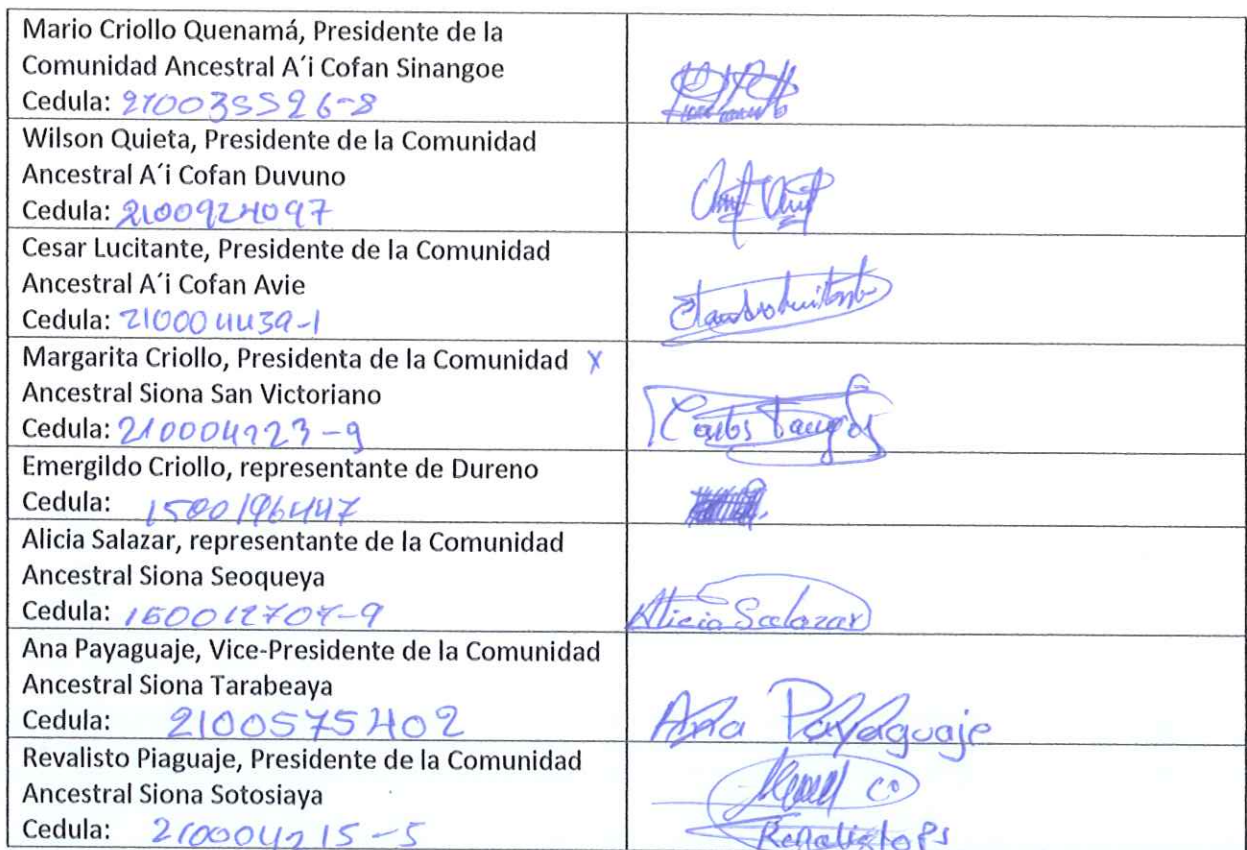 Mario Criollo Quenamá, Presidente de la
Comunidad Ancestral A´i Cofan Sinangoe
Cedula: 210035526-8
Wilson Quieta, Presidente de la Comunidad
Ancestral A´i Cofan Duvuno
Cedula: 2100924097
Cesar Lucitante, Presidente de la Comunidad
Ancestral A´i Cofan Avie
Cedula: 210004439-1
Margarita Criollo, Presidenta de la Comunidad X
Ancestral Siona San Victoriano
Cedula: 210004123-9
Carlos
Emergildo Criollo, representante de Dureno
Cedula: 1500196447
Alicia Salazar, representante de la Comunidad
Ancestral Siona Seoqueya
Cedula:
Alicia Salazar
Ana Payaguaje, Vice-Presidente de la Comunidad
Ancestral Siona Tarabeaya
Cedula: 2100575402
Ana Payaguaje
Revalisto Piaguaje, Presidente de la Comunidad
Ancestral Siona Sotosiaya
Cedula: 210004215-5